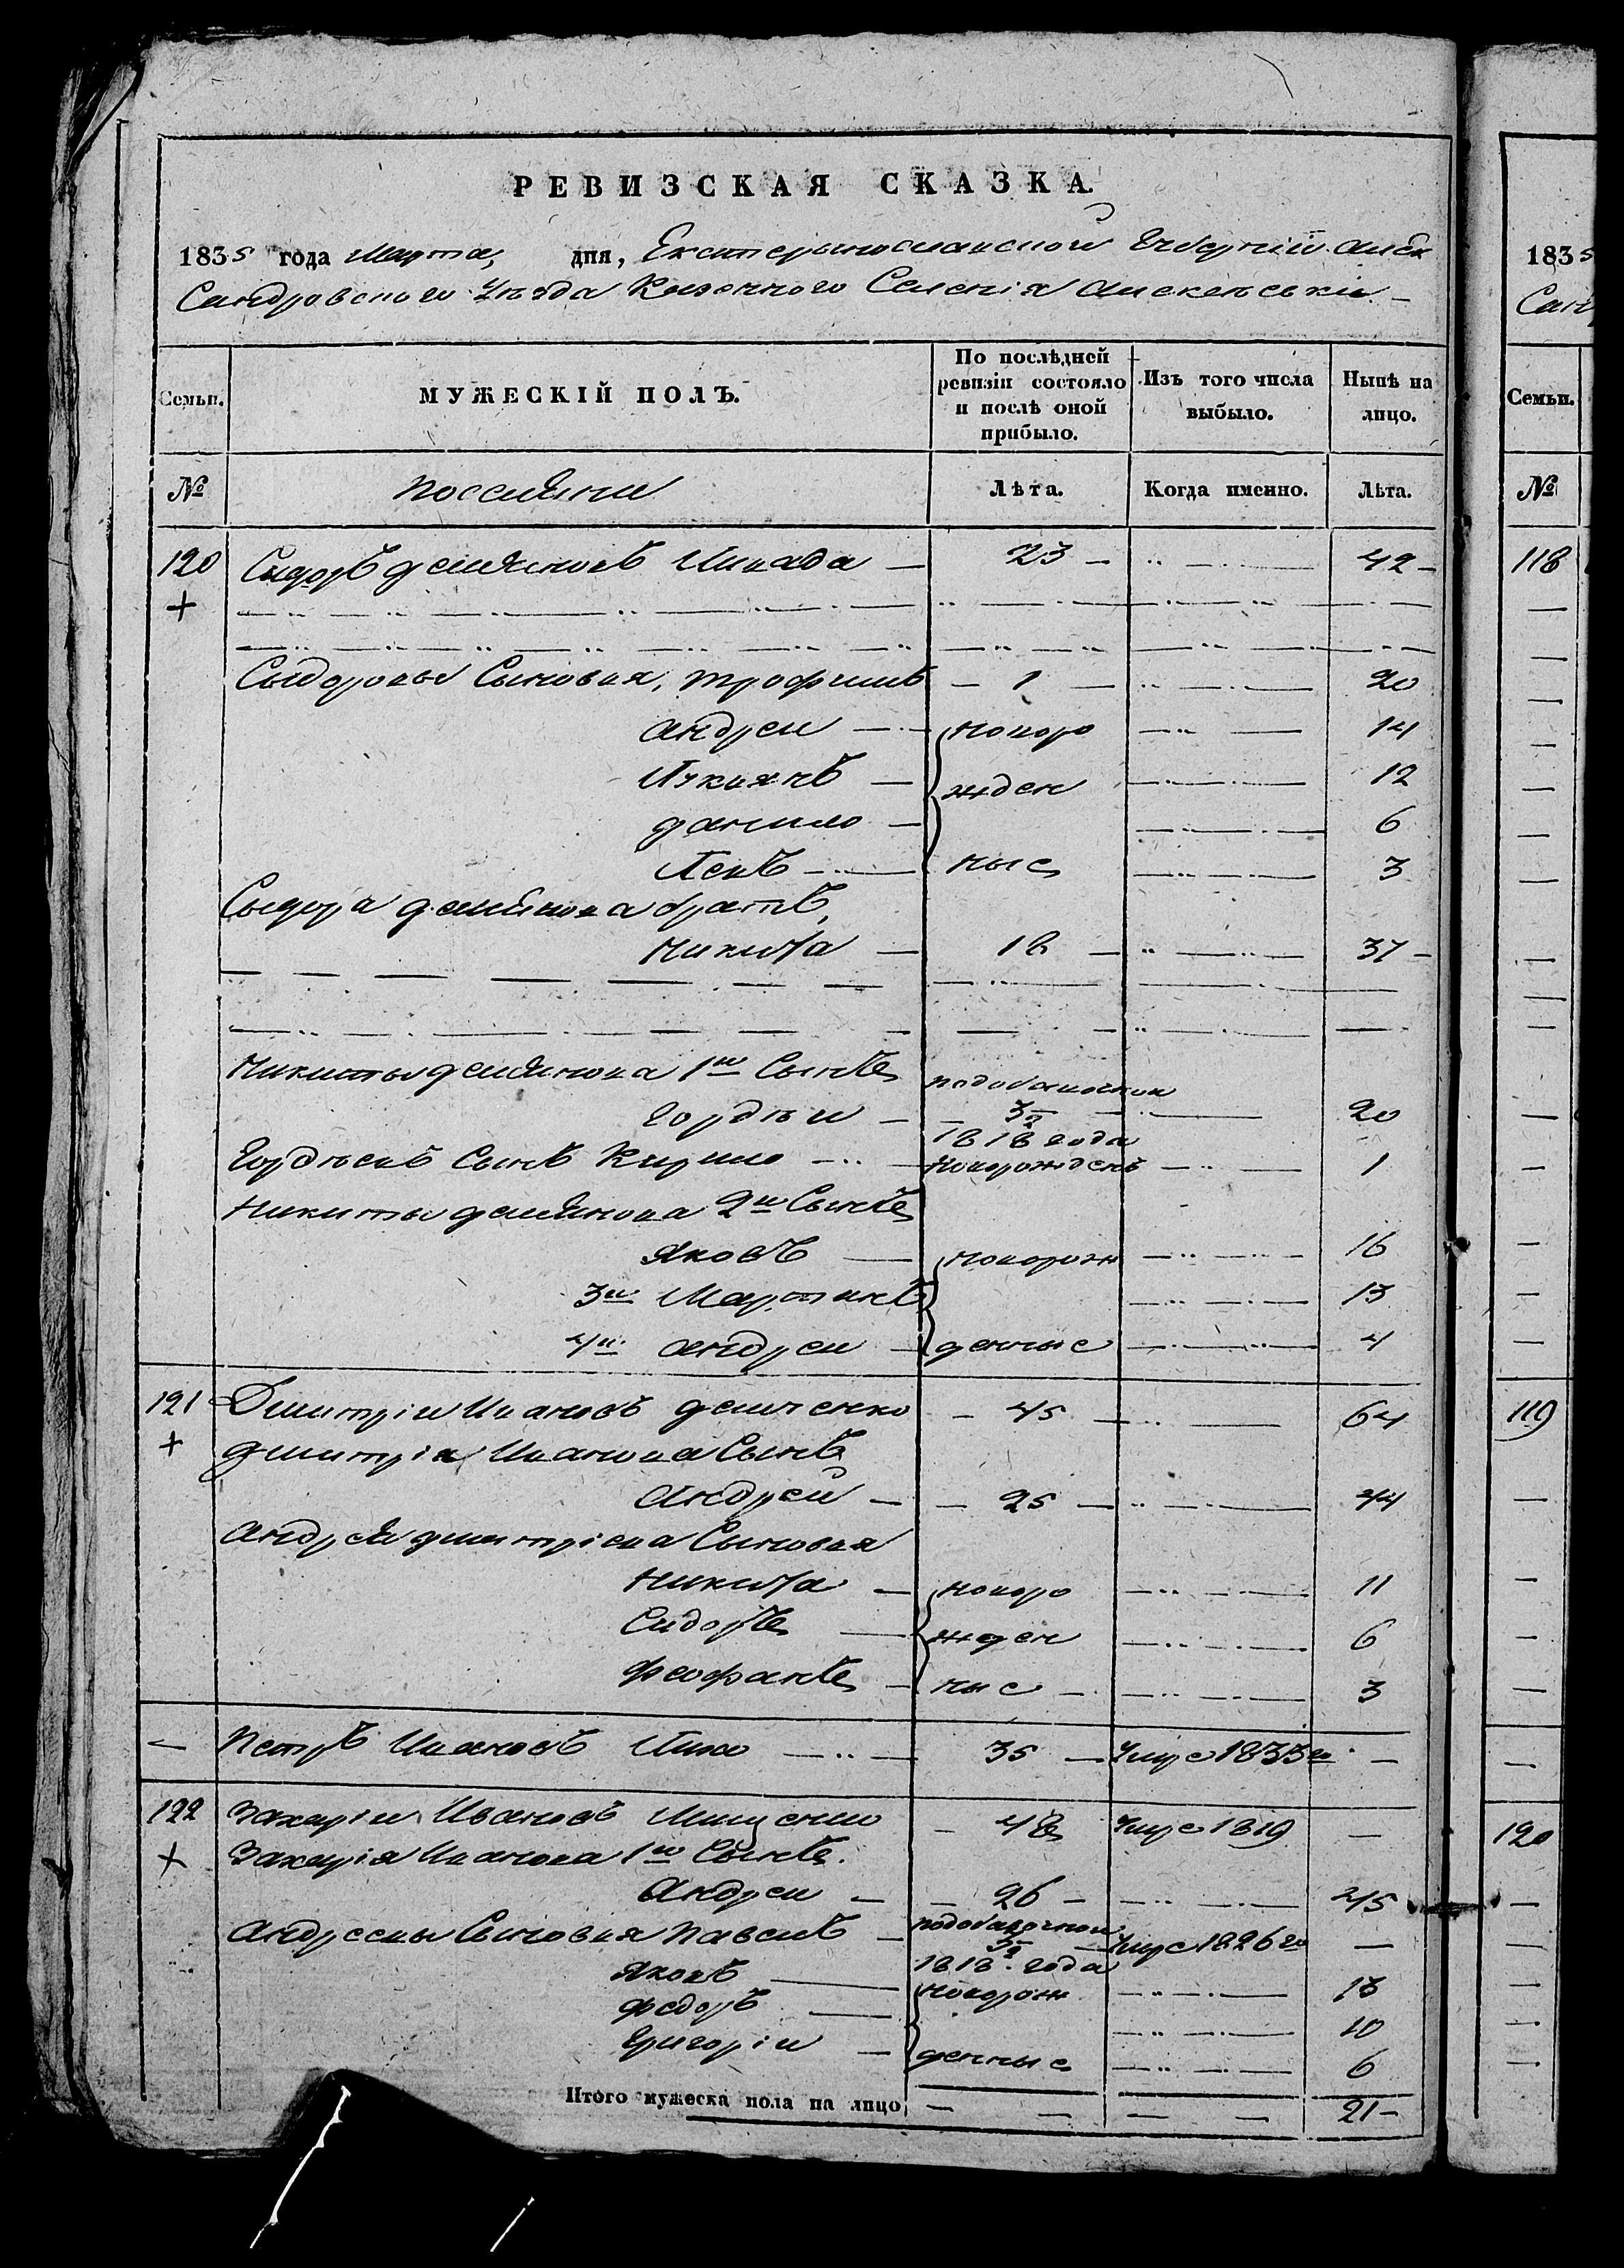 РЕВИЗСКАЯ СКАЗКА.
1835 года Марта, дня, Екатериносланской Губерніи Алек
Сандровского Уѣзда Казенного Селенія
183 5
Сан
Семьи. МУЖЕСКІЙ ПОЛЪ. По послѣдней ревизіи состояло и послѣ оной прибыло. Изъ того числа выбыло. Нынѣ на лицо.
Семьи.
№ Поселяни Лѣта. Когда именно. Лѣта.
№
120 Сидоръ демяновъ 23 42
118
Сыдоровы Сыновья, трофимъ 1 20
андреи новоро 14
Лукиянъ жден 12
данило 6
Левъ ные 3
Сыдора демянова братъ,
Никита 18 37
Никиты демянова 1й Сынъ подобавочной
Гордѣи 3й 20
1818 года
Гордѣевъ Сынъ Кирило новорожденъ 1
Никиты демянова 2й Сынъ
Яковъ новорож 16
3й Мартинъ 13
4й андреи денные 4
121 Дмитріи Ивановъ демченко 45 64
119
дмитрія Иванова Сынъ
Андрей 25 44
Андрея дмитріева Сыновья
Никита новоро 11
Сидоръ жден 6
Феофанъ ные 3
Петръ Ивановъ 35 Умре 1833го
122 Захаріи Ивановъ 48 Умре 1819
120
Захарія Иванова 1й Сынъ.
Андреи 26 45
Андреевы Сыновья Павелъ подобавочной Умре 1826го
3й
1818. года
Яковъ новорож 13
Федоръ 10
Григоріи денные 6
Итого мужеска пола на лицо 21